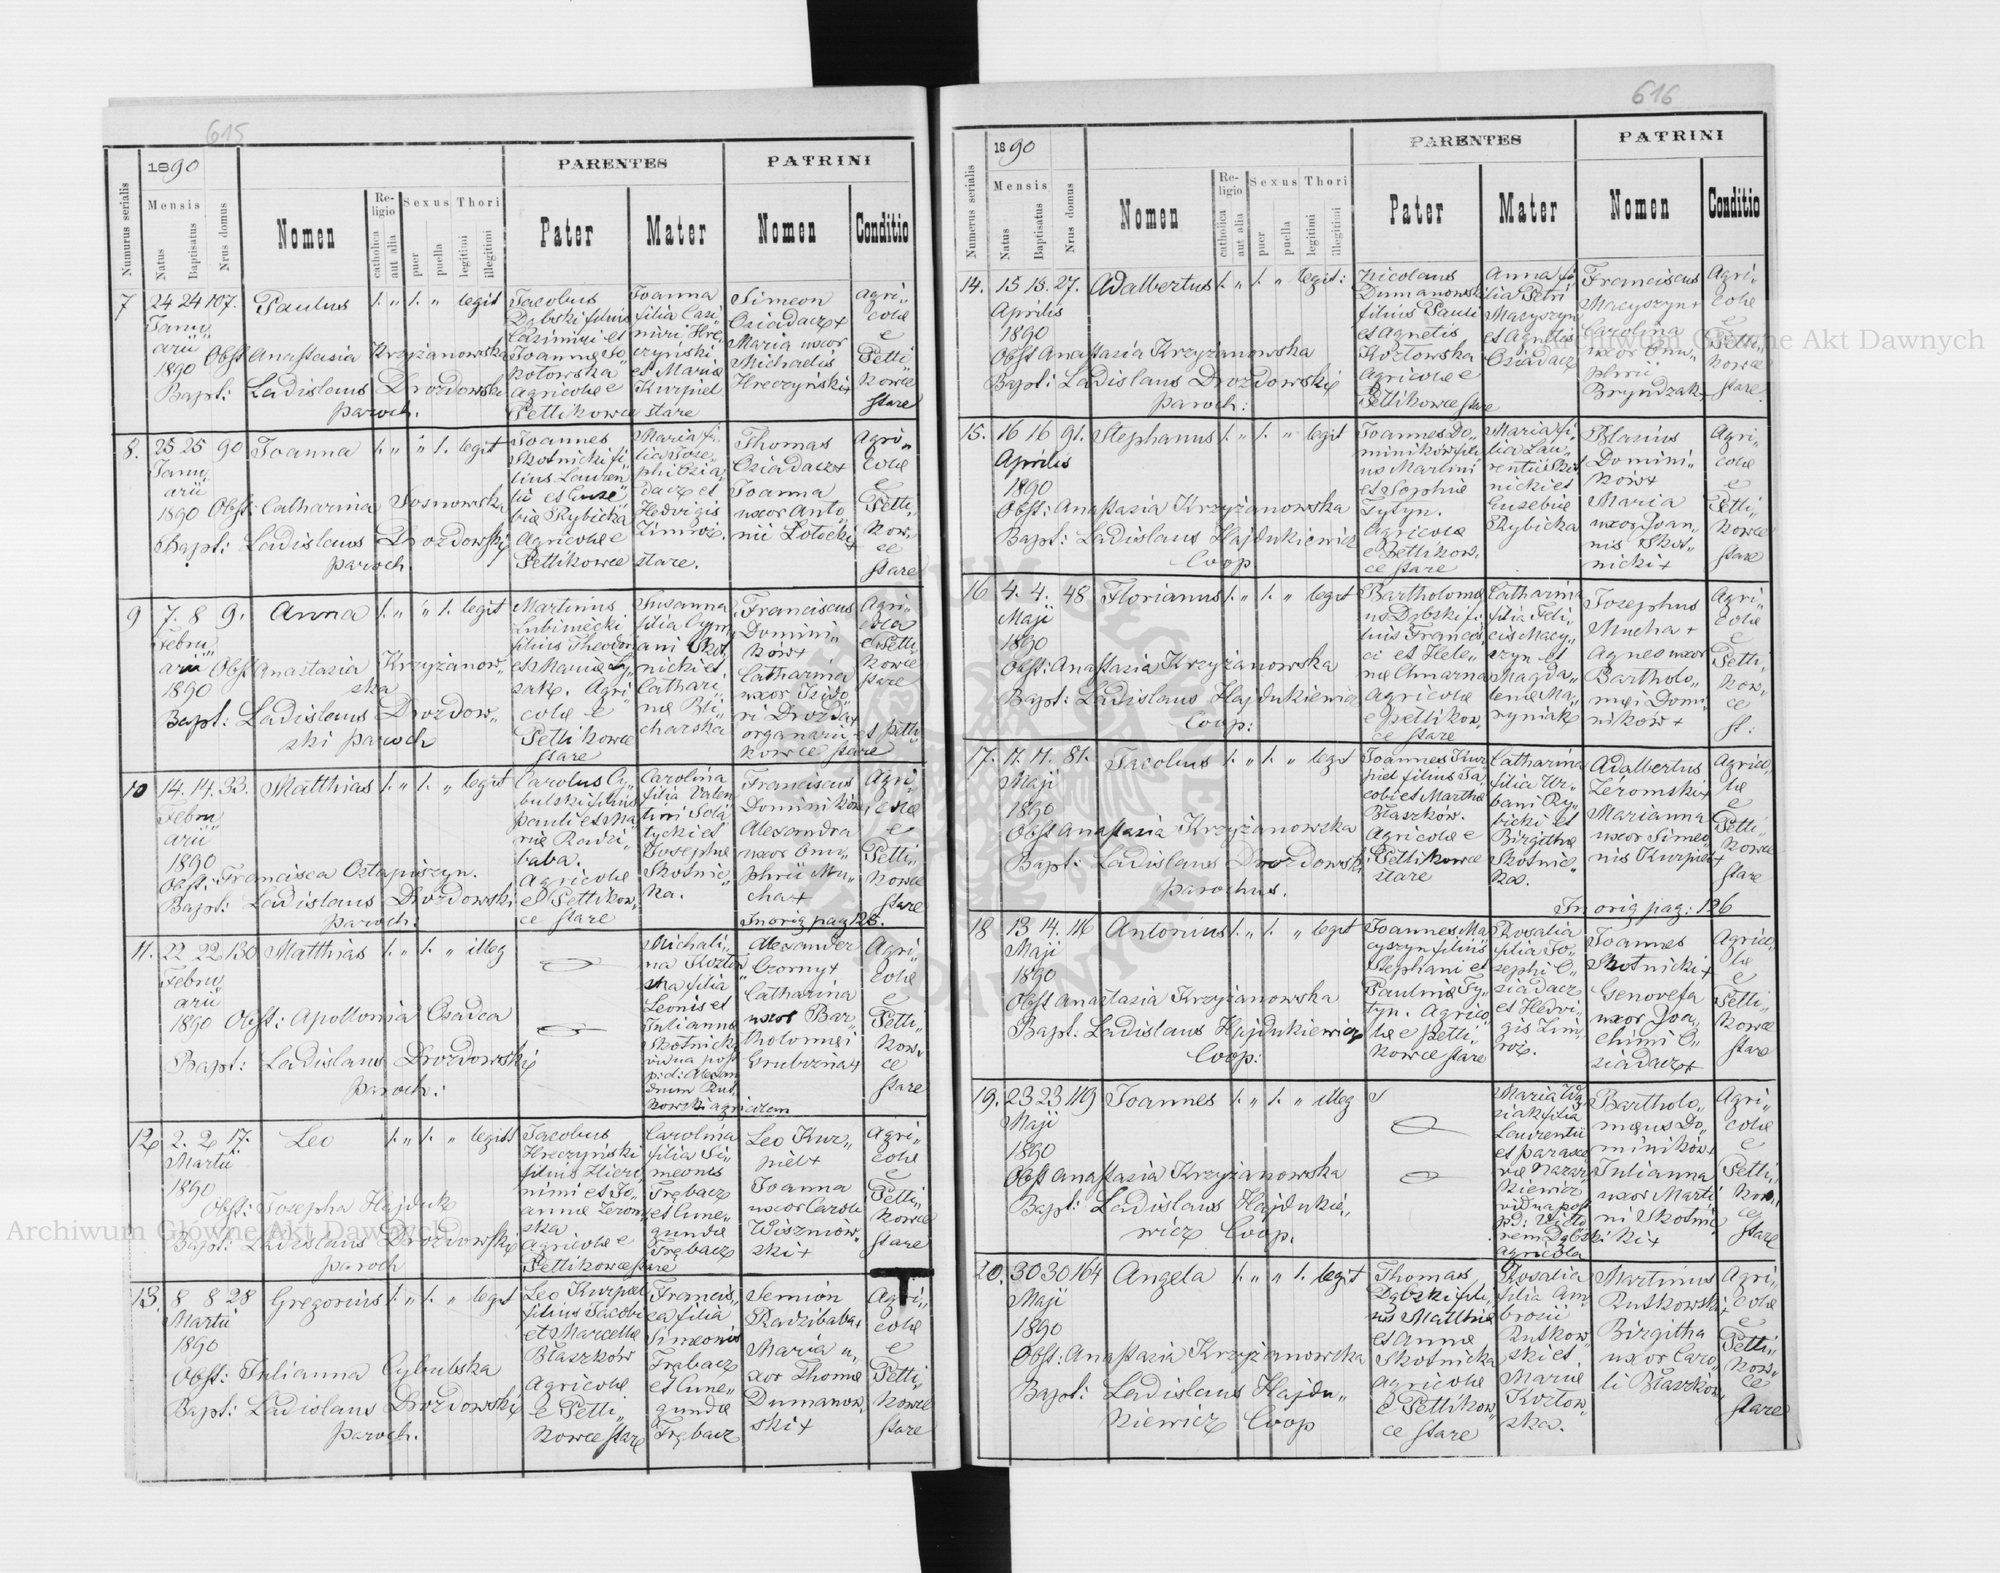 615
1890
PARENTES
PATRINI
Numurus serialis
Mensis
Natus
Baptisatus
Nrus domus
Nomen
Re-
ligio
catholica
aut alia
Sexus
puer
puella
Thori
legitimi
illegitimi
Pater
Mater
Nomen
Conditio
7 24 24 107. Paulus 1. „ 1. „ legit
Janu„
arii
1890
Obst Anastasia Krzyżanowska
Bapt: Ladislaus Drozdowski
paroch.
Jacobus
Dąbski filius
Casimiri et
Joannæ So„
kotowska
Agricolæ e
Petlikowce stare
Joanna
filia Casi„
miri Hre„
czyński
et Maria
Kurpiel
Simeon
Osiadacz+
Maria uxor
Michaelis
Hreczyński+
Agri„
colæ
e
Petli„
kowce
stare
8. 25 25 90 Joanna 1. „ „ 1. legit
Janu„
arii
1890
Obst: Catharina Sosnowska
Bapt: Ladislaus Drozdowski
paroch.
Joannes
Skotnicki fi„
lius Lauren„
tii et Euse„
biæ Rybicka
Agricolæ e
Petlikowce stare.
Maria fi„
lia Jose„
phi Osia„
dacz et
Hedvigis
Zimroz.
Thomas
Osiadacz+
Joanna
uxor Anto„
nii Lotocki+
Agri„
colæ
e
Petli„
kow„
ce
stare
9 7. 8 9. Anna 1. „ „ 1. legit
Febru„
arii
1890
Obst Anastasia Krzyżanow„
ska
Bapt: Ladislaus Drozdow„
ski paroch
Martinus
Lubiniecki
filius Theodori
et Mariæ
Agri„
colæ e
Petlikowce
stare
Susanna
filia Cypri„
ani Skot„
nicki et
Cathari„
næ Bli„
charska
Franciscus
Domini„
ków+
Catharina
uxor Isido„
ri Drozda+
organarii et petli„
kowce stare
Agri„
colæ
e Petli„
kowce
stare
10 14. 14. 33. Matthias 1. „ 1. „ legit
Febru„
arii
1890
Obst: Francisca Ostapiszyn.
Bapt: Ladislaus Drozdowski
paroch:
Carolus Cy„
bulski filius
pauli et Ma„
riæ Radzi„
baba.
Agricolæ
e Petlikow„
ce stare
Carolina
filia Valen„
tini Soła„
tycki et
Josephæ
Skotnic„
ka.
Franciscus
Dominików+
Alexandra
uxor Onu„
phrii Mu„
cha+
In orig pag 126.
Agri„
colæ
e
Petli„
kowce
stare
11. 22 22 130 Matthias 1. „ 1. „ illeg
Febru„
arii
1890
Obst: Apollonia Osadca
Bapt: Ladislaus Drozdowski
paroch:
Michali„
na Kozłow„
ska filia
Leonis et
Julianna
Skotnicka
vidua post
p: d: Alexan„
drum Rut„
kowski agricolam
Alexander
Czorny+
Catharina
uxor Bar„
tholomæi
Grubizna+
Agri„
colæ
e
Petli„
kow„
ce
stare
12 2. 2 17. Leo 1. „ 1. „ legit
Martii
1890
Obst: Josepha Hajduk
Bapt: Ladislaus Drozdowski
paroch
Jacobus
Hreczyński
filius Hiero„
nimi et Jo„
annæ Żerom„
ska
Agricolæ e
Petlikowce stare
Carolina
filia Si„
meonis
Trębacz
et Cune„
gundæ
Trębacz
Leo Kur„
piel+
Joanna
uxor Caroli
Wiszniow„
ski+
Agri„
colæ
e
Petli„
kowce
stare
13. 8 8 28 Gregorius 1. „ 1. „ legit
Martii
1890
Obst: Julianna Cybulska
Bapt: Ladislaus Drozdowski
paroch.
Leo Kurpiel
filius Jacobi
et Marcellæ
Błaszków
Agricolæ
e Petli„
kowce stare
Francis„
ca filia
Simeonis
Trębacz
et Cune„
gundæ
Trębacz
Semion
Radzibaba+
Maria u„
xor Thomæ
Dumanow„
ski+
Agri„
colæ
e
Petli„
kowce
stare
616
1890
PARENTES
PATRINI
Numerus serialis
Mensis
Natus
Baptisatus
Nrus domus
Nomen
Re-
ligio
catholica
aut alia
Sexus
puer
puella
Thori
legitimi
illegitimi
Pater
Mater
Nomen
Conditio
14. 15 15. 27. Adalbertus 1. „ 1. „ legit:
Aprilis
1890
Obst Anastasia Krzyżanowska
Bapt: Ladislaus Drozdowski
paroch:
Nicolaus
Dumanowski
filius Pauli
et Agnetis
Kozłowska
Agricolæ e
Petlikowce stare
Anna fi„
lia Petri
Macyszyn
et Agnetis
Osiadacz
Franciscus
Macyszyn+
Carolina
uxor Onu„
phrii
Bryndzak+
Agri„
colæ
e
Petli„
kowce
stare.
15. 16 16 91. Stephanus 1. „ 1. „ legit
Aprilis
1890
Obst: Anastasia Krzyżanowska
Bapt: Ladislaus Hajdukiewicz
Coop
Joannes Do„
miników fili„
us Martini
et Sophiæ
Tytyn.
Agricolæ
e Petlikow„
ce stare
Maria fi„
lia Lau„
rentii Skot„
nicki et
Eusebiæ
Rybicka
Blasius
Domini„
ków+
Maria
uxor Joan„
nis Skot„
nicki+
Agri„
colæ
e
Petli„
kowce
stare
16 4. 4. 48 Florianus 1. „ 1. „ legit
Maji
1890
Obst: Anastasia Krzyżanowska
Bapt: Ladislaus Hajdukiewicz
Coop:
Bartholomæ„
us Dąbski fi„
lius Francis„
ci et Hele„
næ Chmarna
Agricolæ
e petlikow„
ce stare
Catharina
filia Feli„
cis Macy„
szyn et
Magda„
lenæ Ma„
ryniak
Josephus
Mucha +
Agnes uxor
Bartholo„
mæi Domi„
ników +
Agri„
colæ
e
Petli„
kow„
ce
st:
17. 11. 11. 81. Jacobus 1. „ 1. „ legit
Maji
1890
Obst Anastasia Krzyżanowska
Bapt: Ladislaus Drozdowski
parochus.
Joannes Kur„
piel filius Ja„
cobi et Marthæ
Błaszków.
Agricolæ e
Petlikowce
stare
Catharina
filia Ur„
bani Ry„
bicki et
Birgithæ
Skotnic„
ka.
Adalbertus
Żeromski+
Marianna
uxor Simeo„
nis Kurpiel+
Agrico„
læ
e
Petli„
kowce
stare
In orig pag: 126
18 13. 14. 116 Antonius 1. „ 1. „ legit
Maji
1890
Obst Anastasia Krzyżanowska
Bapt. Ladislaus Hajdukiewicz
Coop:
Joannes Ma„
cyszyn filius
Stephani et
Paulinæ Ty„
tyn. Agrico„
læ e petli„
kowce stare
Rosalia
filia Jo„
sephi O„
siadacz
et Hedvi„
gis Zim„
roz.
Joannes
Skotnicki+
Genovefa
uxor Joa„
chimi O„
siadacz+
Agrico„
læ
e
Petli„
kowce
stare
19. 23 23 119 Joannes 1. „ 1. „ illeg
Maji
1890
Obst Anastasia Krzyżanowska
Bapt: Ladislaus Hajdukie„
wicz Coop.
filia
Laurentii
et parasce„
viæ Nazar„
kiewicz
vidua post
pd: Victo„
rem Dąbski
agricola
Bartholo„
mæus Do„
miników+
Julianna
uxor Marti„
ni Skotnic„
ki+
Agri„
colæ
e
Petli„
kow„
ce
stare
20. 30 30 164 Angela 1. „ „ 1. legit
Maji
1890
Obst: Anastasia Krzyżanowska
Bapt: Ladislaus Hajdu„
kiewicz Coop
Thomas
Dąbski fili„
us Matthiæ
et Annæ
Skotnicka
agricolæ
e Petlikow„
ce stare
Rosalia
filia Am„
brosii
Rutkow„
ski et
Mariæ
Kozłow„
ska.
Martinus
Rutkowski+
Birgitha
uxor Caro„
li Błaszków
Agri„
colæ
e
Petli„
kow„
ce
stare
Archiwum Główne Akt Dawnych
Archiwum Główne Akt Dawnych